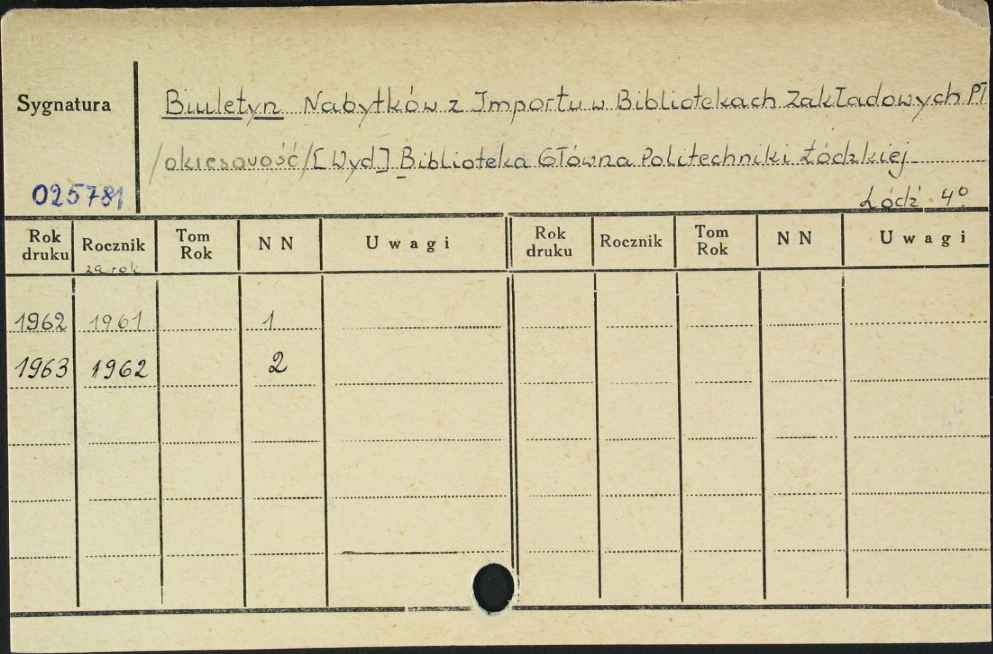 Sygnatura
Biuletyn Nabytków z Importu w Bibliotekach Zakładowych PŁ
/okresowość/ [Wyd] Biblioteka Główna Politechniki Łódzkiej
025781
Łódź 4°
Rok druku Rocznik za rok Tom Rok NN Uwagi Rok druku Rocznik Tom Rok NN Uwagi
1962 1961 1
1963 1962 2